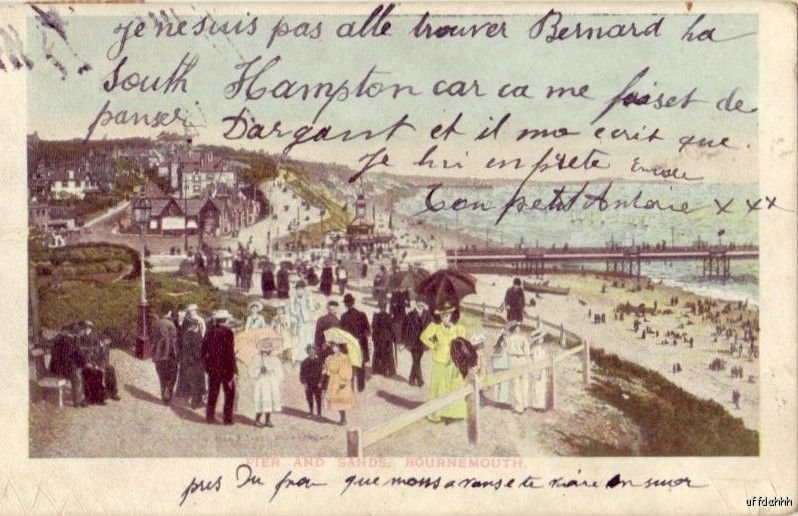 je ne suis pas allé trouver Bernard ha
South Hampton car ca me faiset de
panser D'argant et il ma ecrit que
Je lui en prete
Ton petit Antoine x xx
PIER AND SANDS, BOURNEMOUTH.
pres Du que nous avans
uffdahhh